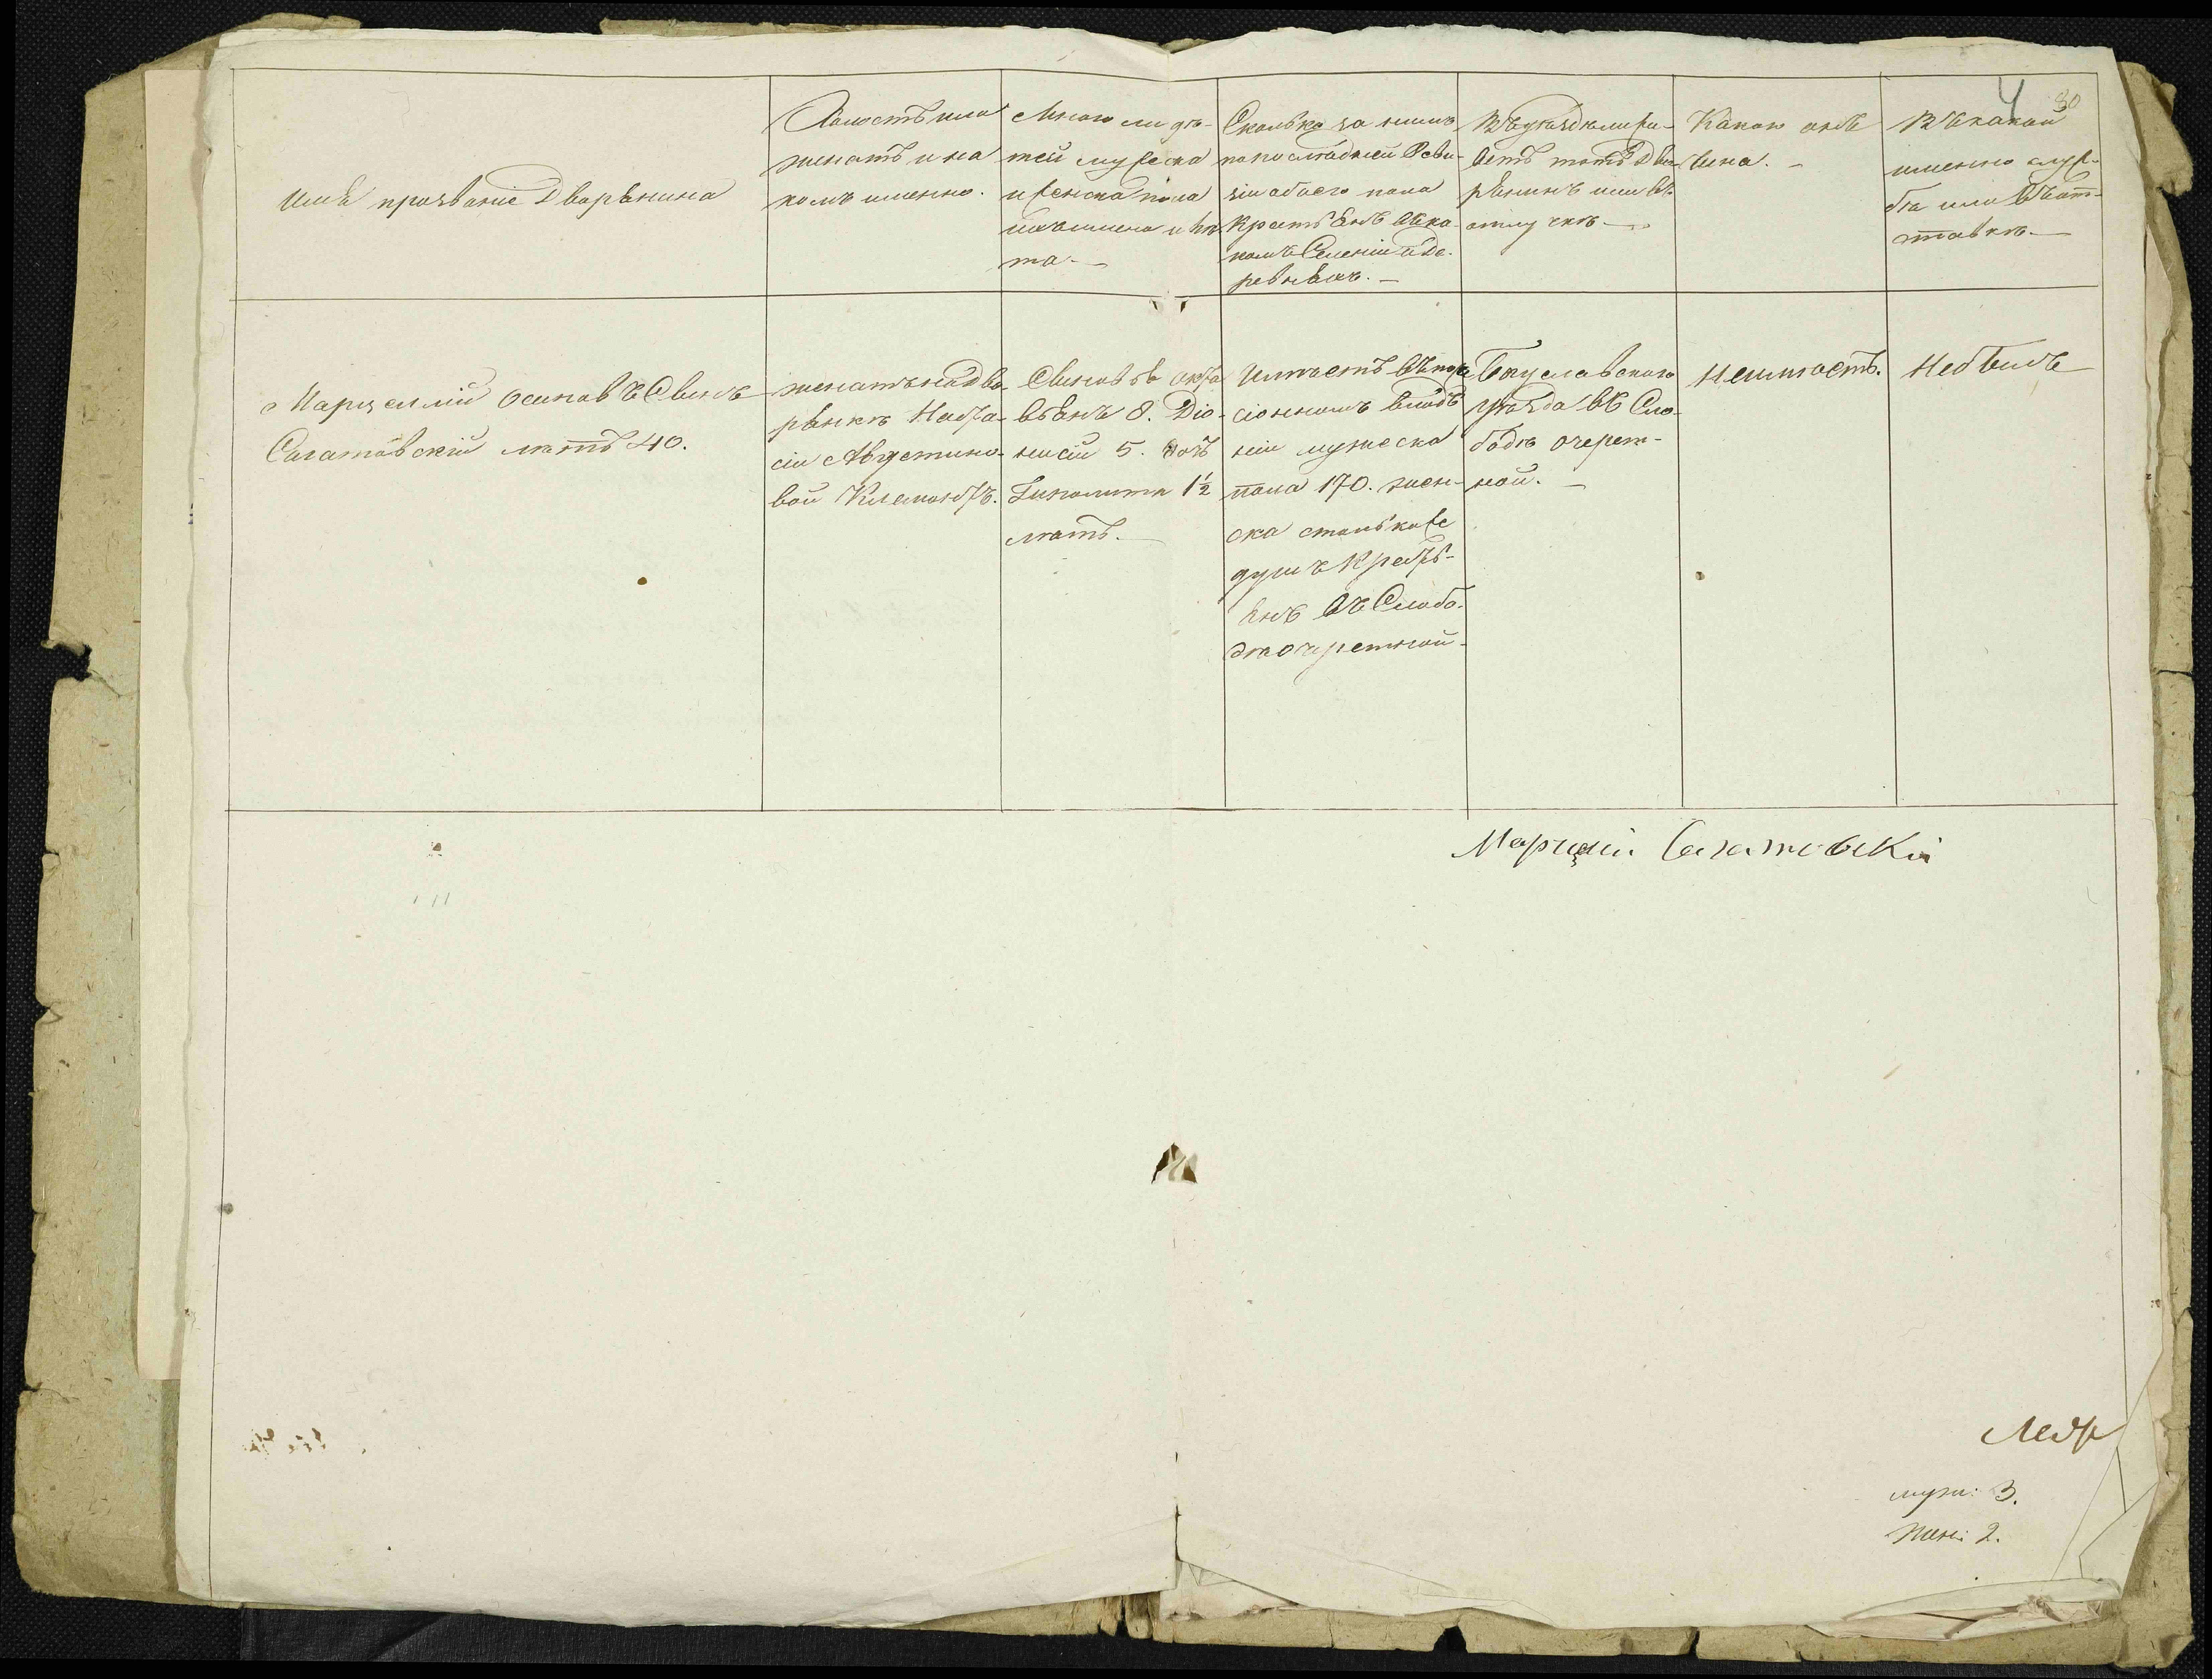 4 30
Имя прозваніе Дворянина
Холостъ или
женатъ и на
комъ именно.
Много ли де-
тей мужеска
и женска пола
ихъ имена и лѣ
та.—
Сколько за нимъ
по последней Реви-
зіи обоего пола
Крестьянъ въ ка-
комъ Селеніи и де-
ревняхъ.—
Въ уѣзде ли жи-
ветъ тотъ Дво-
рянинъ или въ
отлучкѣ—
Какой
чина.—
Въ какой
именно служ-
бѣ или въ от-
ставкѣ.—
Марцеллій Осиповъ Сынъ
Сагатовскій лѣтъ 40.
женатъ на дво-
рянкѣ
сіи Августино-
вой
Сыновъ
8. Діо-
нисій 5. дочь
1½
лѣтъ.—
Имѣетъ въ
сіонномъ владѣ
ніи мужеска
пола 170. жен-
ска столько же
душъ Кресть-
янъ въ Слобо-
дѣ Очеретной-
Богуславского
уезда въ Сло-
бодѣ Очерет-
ной.—
Неимѣетъ.
Небылъ
Сагатовскій
муж: 3.
жен: 2.